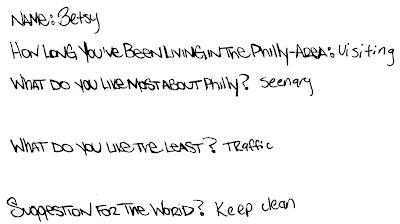 NAME: Betsy
HOW LONG YOU'VE BEEN LIVING IN THE PHILLY-AREA: Visiting
WHAT DO YOU LIKE MOST ABOUT PHILLY? Seenary
WHAT DO YOU LIKE THE LEAST? TRAffic
SUGGESTION FOR THE WORLD? Keep clean